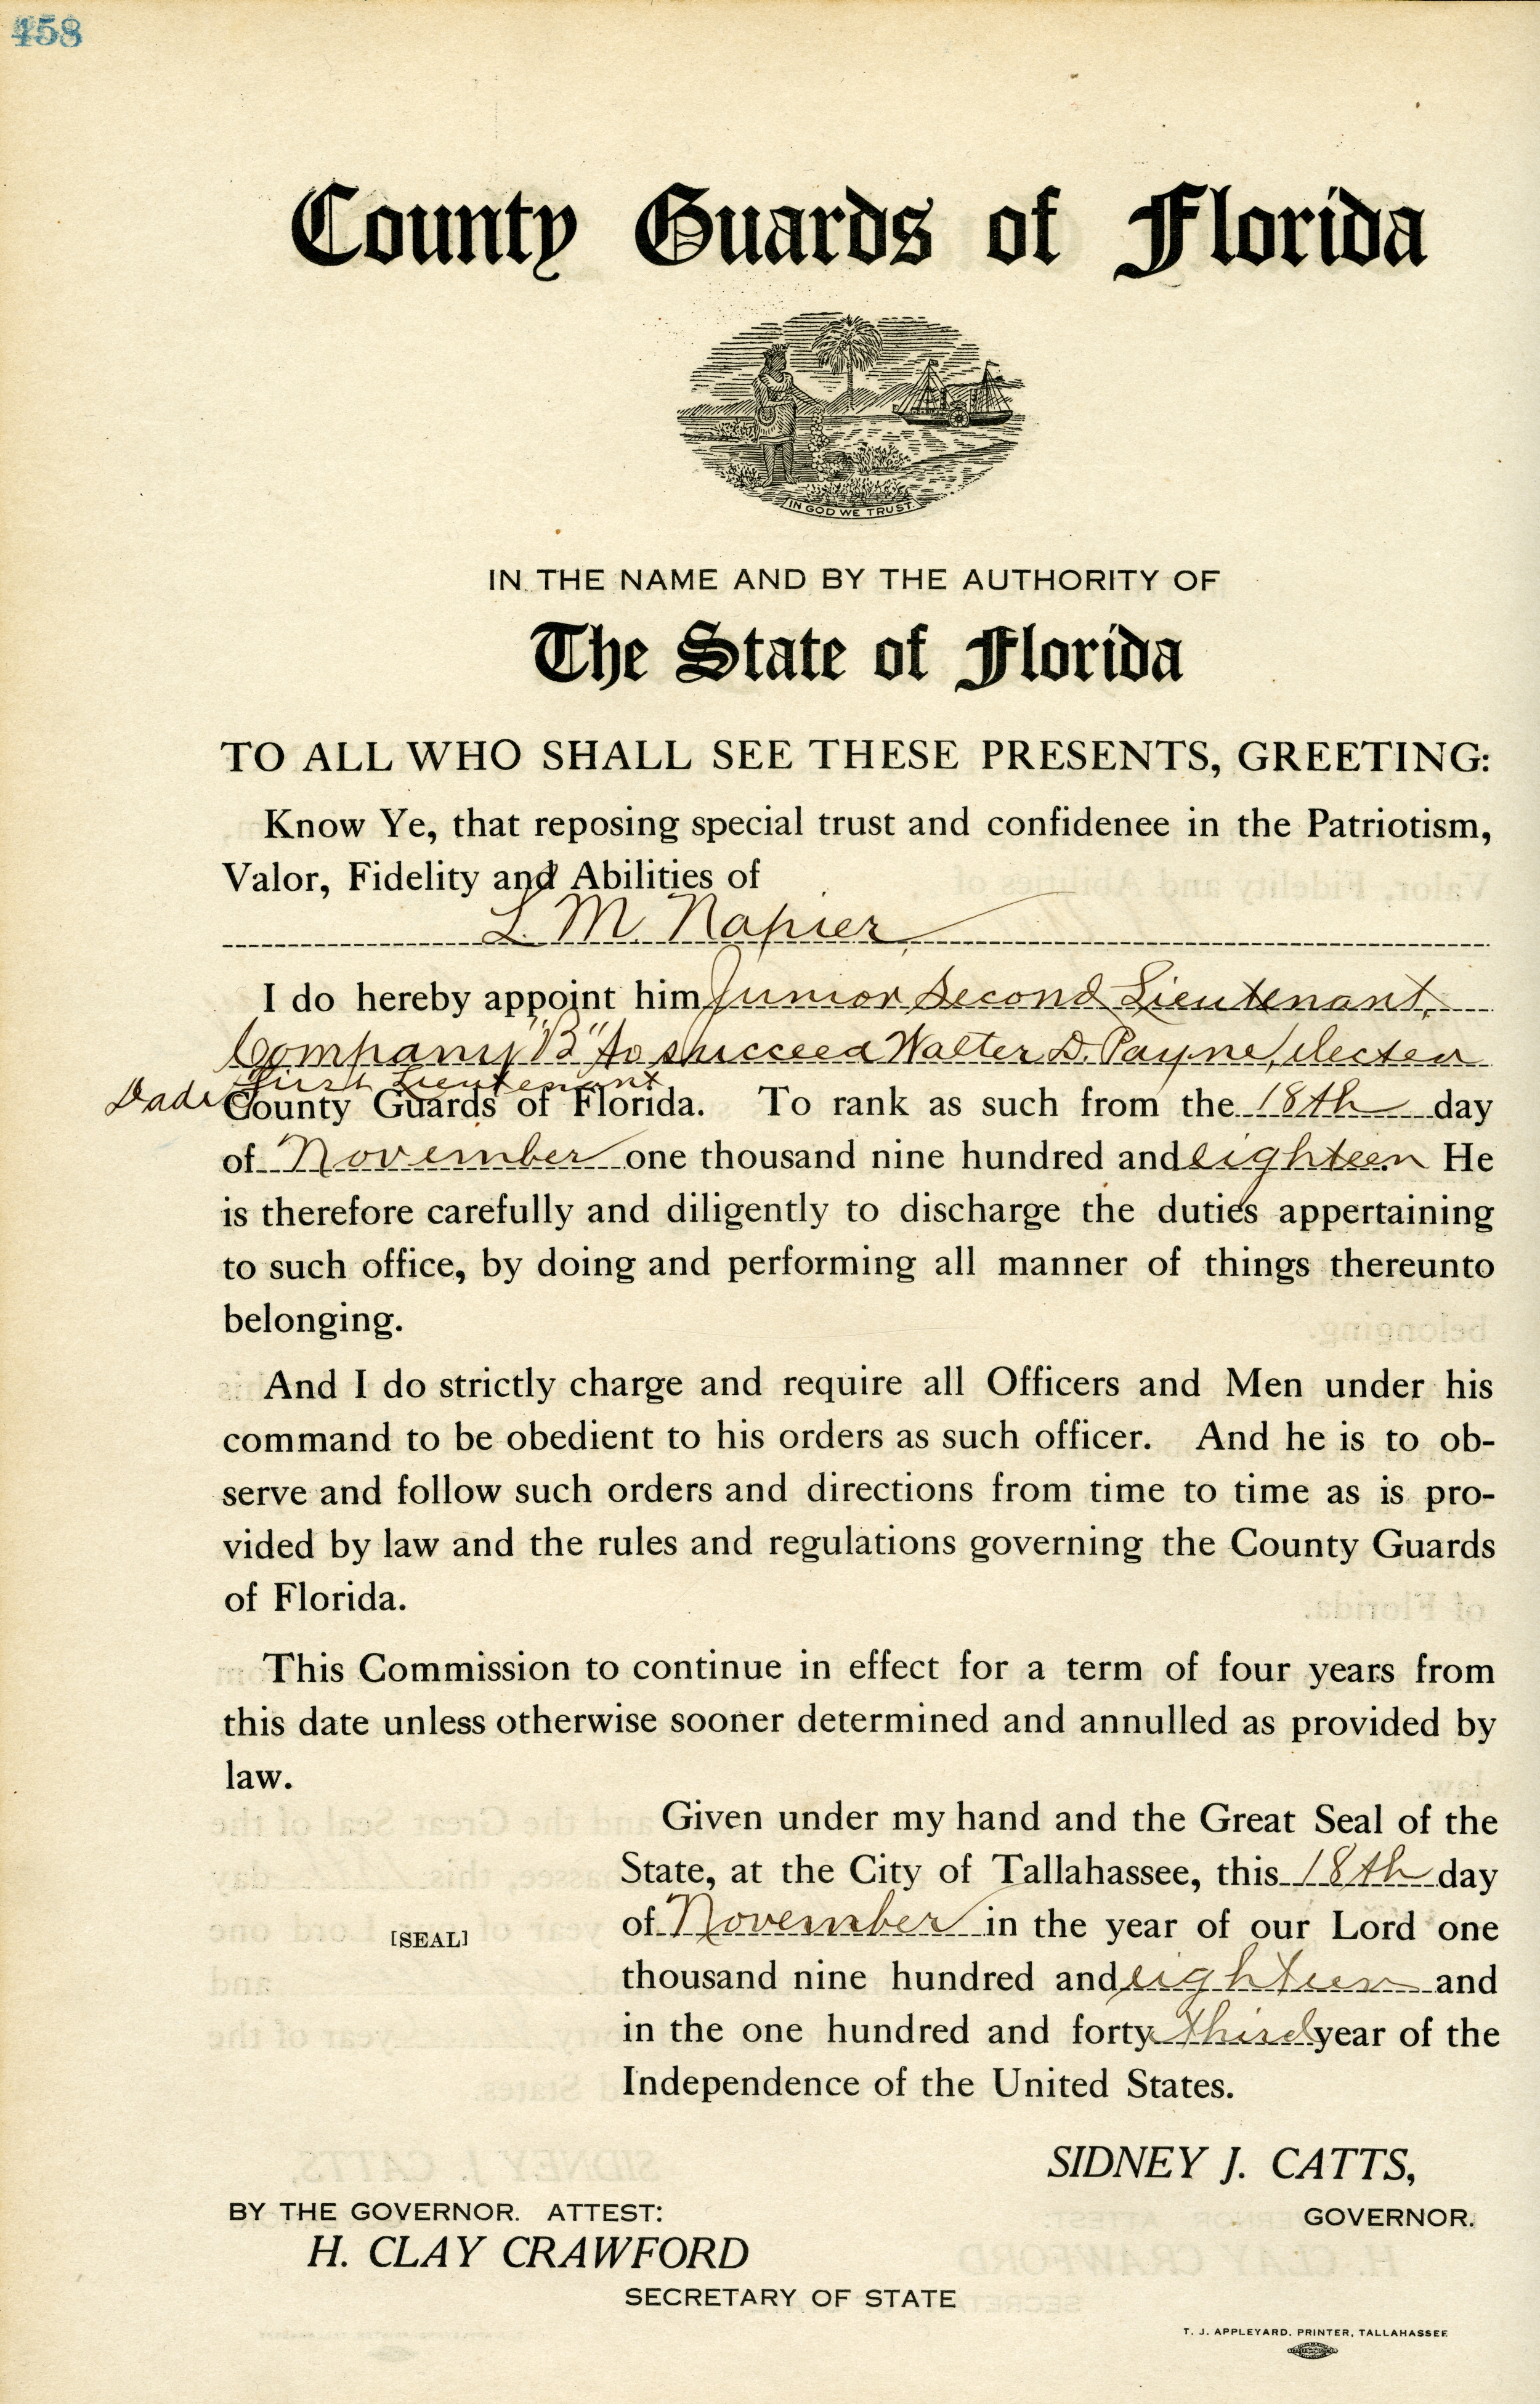 458
County Guards of Florida
IN GOD WE TRUST.
IN THE NAME AND BY THE AUTHORITY OF
The State of Florida
TO ALL WHO SHALL SEE THESE PRESENTS, GREETING:
Know Ye, that reposing special trust and confidenee in the Patriotism,
Valor, Fidelity and Abilities of
L. M. Napier
I do hereby appoint him Junior Second Lieutenant,
Company "B" to succeed Walter D. Payne, elected
First Lieutenant
Dade County Guards of Florida. To rank as such from the 18th day
of November one thousand nine hundred and eighteen He
is therefore carefully and diligently to discharge the duties appertaining
to such office, by doing and performing all manner of things thereunto
belonging.
And I do strictly charge and require all Officers and Men under his
command to be obedient to his orders as such officer. And he is to ob-
serve and follow such orders and directions from time to time as is pro-
vided by law and the rules and regulations governing the County Guards
of Florida.
This Commission to continue in effect for a term of four years from
this date unless otherwise sooner determined and annulled as provided by
law.
Given under my hand and the Great Seal of the
State, at the City of Tallahassee, this 18th day
of November in the year of our Lord one
[SEAL]
thousand nine hundred and eighteen and
in the one hundred and forty third year of the
Independence of the United States.
SIDNEY J. CATTS,
BY THE GOVERNOR. ATTEST:
GOVERNOR.
H. CLAY CRAWFORD
SECRETARY OF STATE
T. J. APPLEYARD, PRINTER, TALLAHASSEE